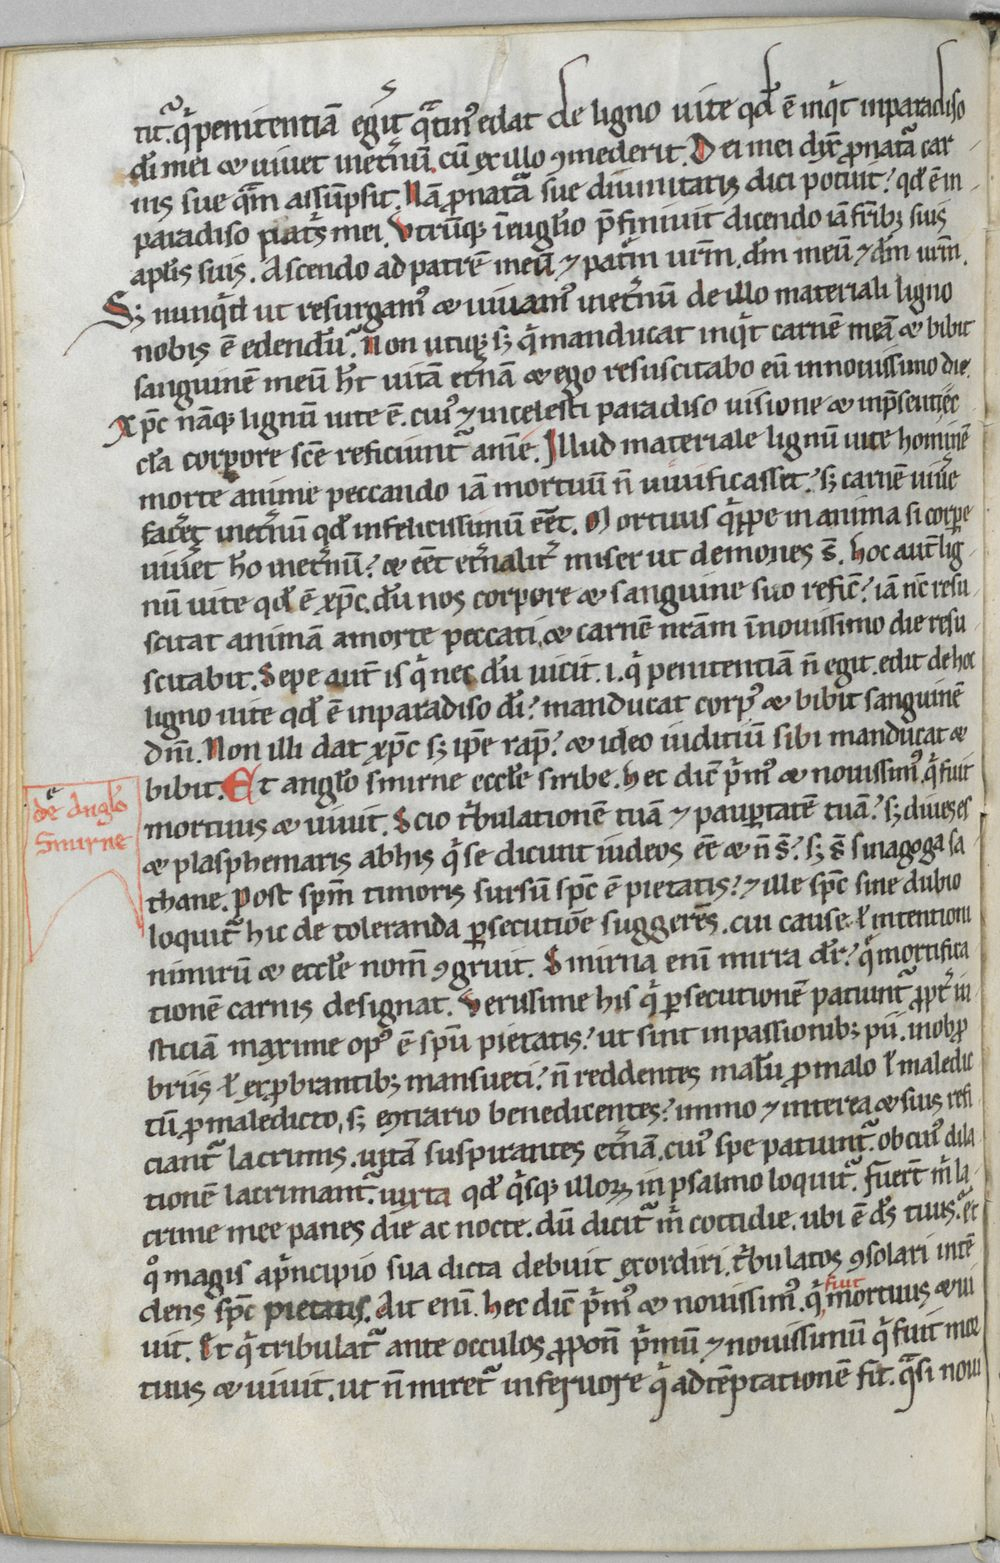 tit᷑. q̇ penitentiā egiͭ qͣtin᷒ edat de ligno uite qđ ē inq̇t inparadiso
dī mei & uiuet inet̉nū. cū ex illo ꝯmederit. Dei mei dix̄ ꝓnatā car
nis sue qͣm assūpsit. Nā ꝓnatā sue diuinitatis dici potuit? qđ ē in
paradiso pat̉s mei. Vtrūq; īeuḡlio p̄finiuit dicendo iā frīb; suis
aplīs suis. Ascendo ad patrē meū ⁊ pat̉m urm̄. dm̄ meū ⁊ dm̄ urm̄.
S; nunq̇d ut resurgam᷒ & uiuam᷒ inet̉nū de illo materiali ligno
nobis ē edendū? Non utiq; s; q̇ manducat inq̇t carnē meā & bibit
sanguinē meū h̄t uitā et̉nā & ego resuscitabo eū innouissimo die.
Xp̄c nāq; lignū uite ē. cui᷒ ⁊ incelesti paradiso uisione & inp̄senti ec
clā corpore scē reficiunt᷑ anīe. Illud materiale lignū uite hominē
morte anime peccando iā mortuū n̄ uiuificasset? s; carnē uiue
facet inet̉nū qđ infelicissimū eēt. Mortuus q̇ppe in anima si corpe
uiuet hō inet̉nū? & eēt et̉nalit̉ miser ut demones s̄. hoc aut̄ lig
nū uite qđ ē xp̄c. dū nos corpore & sanguine suo refic̄? iā nc̄ resu
scitat animā amorte peccati. & carnē nrām īnouissimo die resu
scitabit. Sepe aut̄ is q̇ nec dū uicit .i. q̇ penitentiā n̄ egit. edit de hoc
ligno uite qđ ē inparadiso dī? manducat corp᷒ & bibit sanguinē
dnī. Non illi dat xp̄c s; ip̄e rap̄? & ideo iuditiū sibi manducat &
bibit. Et anglo smirne eccle scribe. hec dic̄ ṗm᷒ & nouissim᷒. q̇ fuit
mortuus & uiuit. Scio t̉bulationē tuā ⁊ pauptatē tuā? s; diues es
& plasphemaris abhis q̇ se dicunt iudeos eē & n̄ s̄? s; s̄ sinagoga sa
thane. Post spm̄ timoris sursū spc̄ ē pietatis? ⁊ ille spc̄ sine dubio
loquit᷑ hic de toleranda psecutiōe suggerēs. cui cause ł intentioni
nimirū & eccle nom̄ ꝯgruit. Smirna enī mirra dr̄? q̇ mortifica
tionē carnis designat. Verissime his q̇ psecutionē patiunt᷑ ꝓpt̉ iu
sticiā maxime op᷒ ē spū pietatis? ut sint inpassionib; pii. inobp
briis ł exꝓbrantib; mansueti? n̄ reddentes malū ꝓ malo ł maledic
tū ꝓ maledicto, s; ecͣrario benedicentes? immo ⁊ interea & suis refi
ciant᷑ lacrimis. uitā suspirantes et̉nā. cui᷒ spe patiunt᷑. ob cui᷒ dila
tionē lacrimant᷑. iuxta qđ q̇sq; illoꝝ in psalmo loquit᷑. fuert̄ ṁ la
crime mee panes die ac nocte. dū dicit᷑ ṁ cottidie. ubi ē ds̄ tuus? et
qͦ magis aṗncipio sua dicta debuit exordiri. t̉bulatos ꝯsolari intē
dens spc̄ pietatis. Ait enī. hec dic̄ ṗm᷒ & nouissim᷒. q̇ fuit mortuus & ui
uit. Et q̇ tribulat᷑ ante occulos ꝓpon̄ ṗmū ⁊ nouissimū q̇ fuit mor
tuus & uiuit. ut n̄ miret᷑ inferuore q̇ adtēptationē fit. qͣsi noui
de Anglo
Smirne